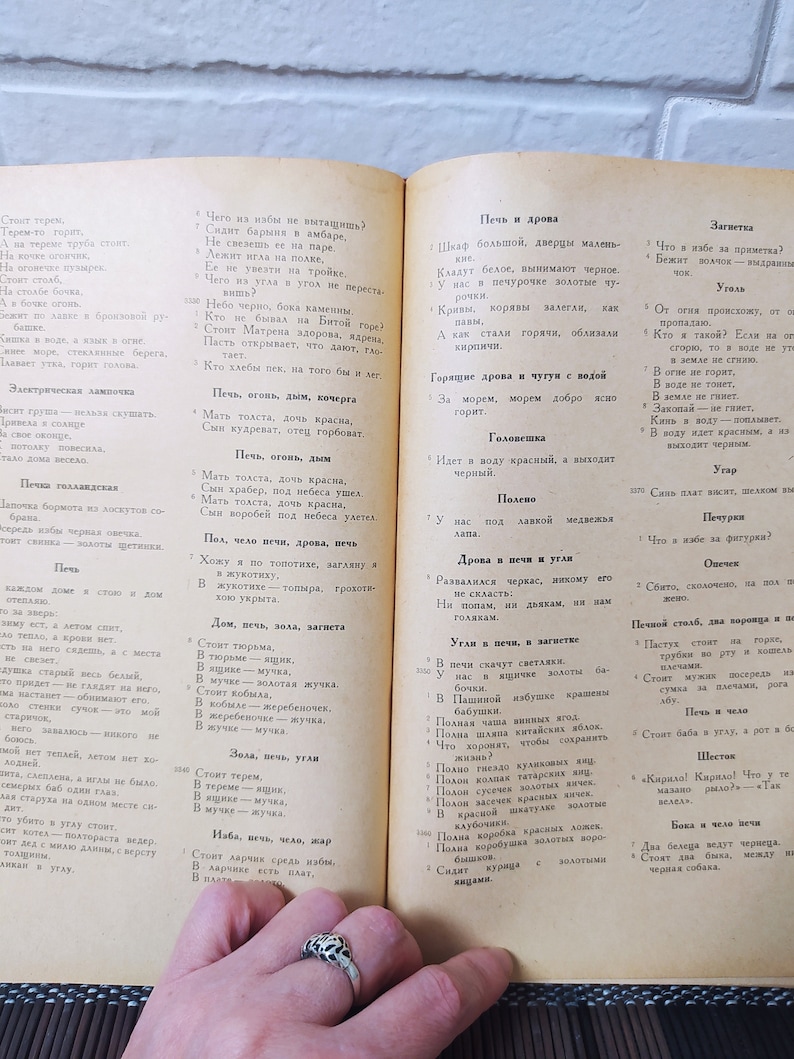 Стоит терем,
Терем-то горит,
А на тереме труба стоит.
На кочке огончик,
На огонечке пузырек.
Стоит столб,
На столбе бочка,
А в бочке огонь.
Бежит по лавке в бронзовой ру-
башке.
Кишка в воде, а язык в огне.
Синее море, стеклянные берега,
Плавает утка, горит голова.
Электрическая лампочка
Висит груша — нельзя скушать.
Привела я солнце
За свое оконце,
потолку повесила,
Стало дома весело.
Печка голландская
Шапочка бормота из лоскутов со-
брана.
Посередь избы черная овечка.
Стоит свинка — золоты щетинки.
Печь
каждом доме я стою и дом
отепляю.
за зверь:
зиму ест, а летом спит,
тело тепло, а крови нет.
есть на него сядешь, а с места
не свезет.
дедушка старый весь белый,
лето придет — не глядят на него,
зима настанет — обнимают его.
около стенки сучок — это мой
старичок,
него завалюсь — никого не
боюсь.
зимой нет теплей, летом нет хо-
лодней.
шита, слеплена, а иглы не было.
семерых баб один глаз.
старуха на одном месте си-
дит.
убито в углу стоит,
котел — полтораста ведер.
дед с милю длины, с версту
толщины.
великан в углу.
6 Чего из избы не вытащишь?
7 Сидит барыня в амбаре,
Не свезешь ее на паре.
8 Лежит игла на полке,
Ее не увезти на тройке.
9 Чего из угла в угол не переста-
вишь?
3330 Небо черно, бока каменны.
1 Кто не бывал на Битой горе?
2 Стоит Матрена здорова, ядрена,
Пасть открывает, что дают, гло-
тает.
3 Кто хлебы пек, на того бы и лег.
Печь, огонь, дым, кочерга
4 Мать толста, дочь красна,
Сын кудреват, отец горбоват.
Печь, огонь, дым
5 Мать толста, дочь красна,
Сын храбер, под небеса ушел.
6 Мать толста, дочь красна,
Сын воробей под небеса улетел.
Пол, чело печи, дрова, печь
7 Хожу я по топотихе, загляну я
в жукотиху,
В жукотихе — топыра, грохоти-
хою укрыта.
Дом, печь, зола, загнета
8 Стоит тюрьма,
В тюрьме — ящик,
В ящике — мучка,
В мучке — золотая жучка.
9 Стоит кобыла,
В кобыле — жеребеночек,
В жеребеночке — жучка,
В жучке — мучка.
Зола, печь, угли
3340 Стоит терем,
В тереме — ящик,
В ящике — мучка,
В мучке — жучка.
Изба, печь, чело, жар
1 Стоит ларчик средь избы,
В ларчике есть плат,
В плате — золото.
Печь и дрова
2 Шкаф большой, дверцы малень-
кие.
Кладут белое, вынимают черное.
3 У нас в печурочке золотые чу-
рочки.
4 Кривы, корявы залегли, как
павы,
А как стали горячи, облизали
кирпичи.
Горящие дрова и чугун с водой
5 За морем, морем добро ясно
горит.
Головешка
6 Идет в воду красный, а выходит
черный.
Полено
7 У нас под лавкой медвежья
лапа.
Дрова в печи и угли
8 Развалился черкас, никому его
не скласть:
Ни попам, ни дьякам, ни нам
голякам.
Угли в печи, в загнетке
9 В печи скачут светляки.
3350 У нас в ящичке золоты ба-
бочки.
1 В Пашиной избушке крашены
бабушки.
2 Полная чаша винных ягод.
3 Полна шляпа китайских яблок.
4 Что хоронят, чтобы сохранить
жизнь?
5 Полно гнездо куликовых яиц.
6 Полон колпак татарских яиц.
7 Полон сусечек золотых яичек.
8 Полон засечек красных яичек.
9 В красной шкатулке золотые
клубочики.
3360 Полна коробка красных ложек.
1 Полна коробушка золотых воро-
бышков.
2 Сидит курица с золотыми
яицами.
Загнетка
3 Что в избе за приметка?
4 Бежит волчок — выдранный
чок.
Уголь
5 От огня происхожу, от
пропадаю.
6 Кто я такой? Если на
сгорю, то в воде не
в земле не сгнию.
7 В огне не горит,
В воде не тонет,
В земле не гниет.
8 Закопай — не гниет,
Кинь в воду — поплывет.
9 В воду идет красным, а из
выходит черным.
Угар
3370 Синь плат висит, шелком
Печурки
1 Что в избе за фигурки?
Опечек
2 Сбито, сколочено, на пол
жено.
Печной столб, два воронца и
3 Пастух стоит на горке,
трубки во рту и кошель
плечами.
4 Стоит мужик посередь
сумка за плечами, рога
лбу.
Печь и чело
5 Стоит баба в углу, а рот в
Шесток
6 «Кирило! Кирило! Что у те
мазано рыло?» — «Так
велел».
Бока и чело печи
7 Два белеца ведут чернеца.
8 Стоят два быка, между
черная собака.